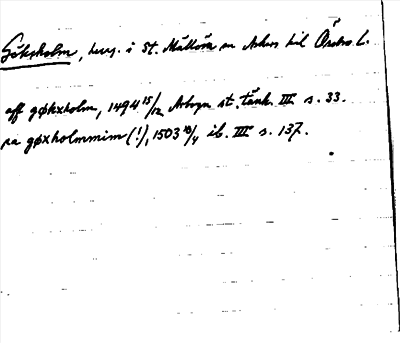 Göksholm, herrg. i St. Mellösa sn Askers hd Örebro l.
aff gøkxholm, 1494 15/12 Arboga st. tänk. III s. 33.
pa gøxholmmim (!), 1503 10/4 ib. III s. 137.